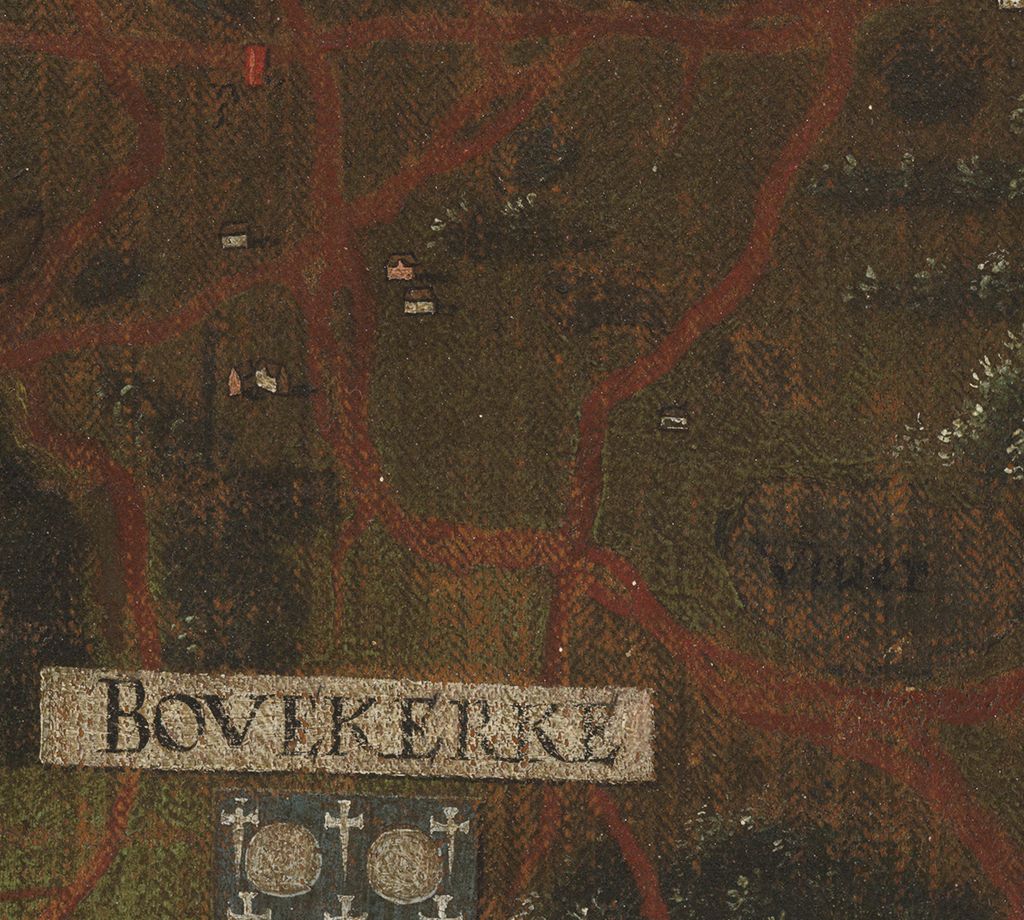 Vijver
BOVEKERKE